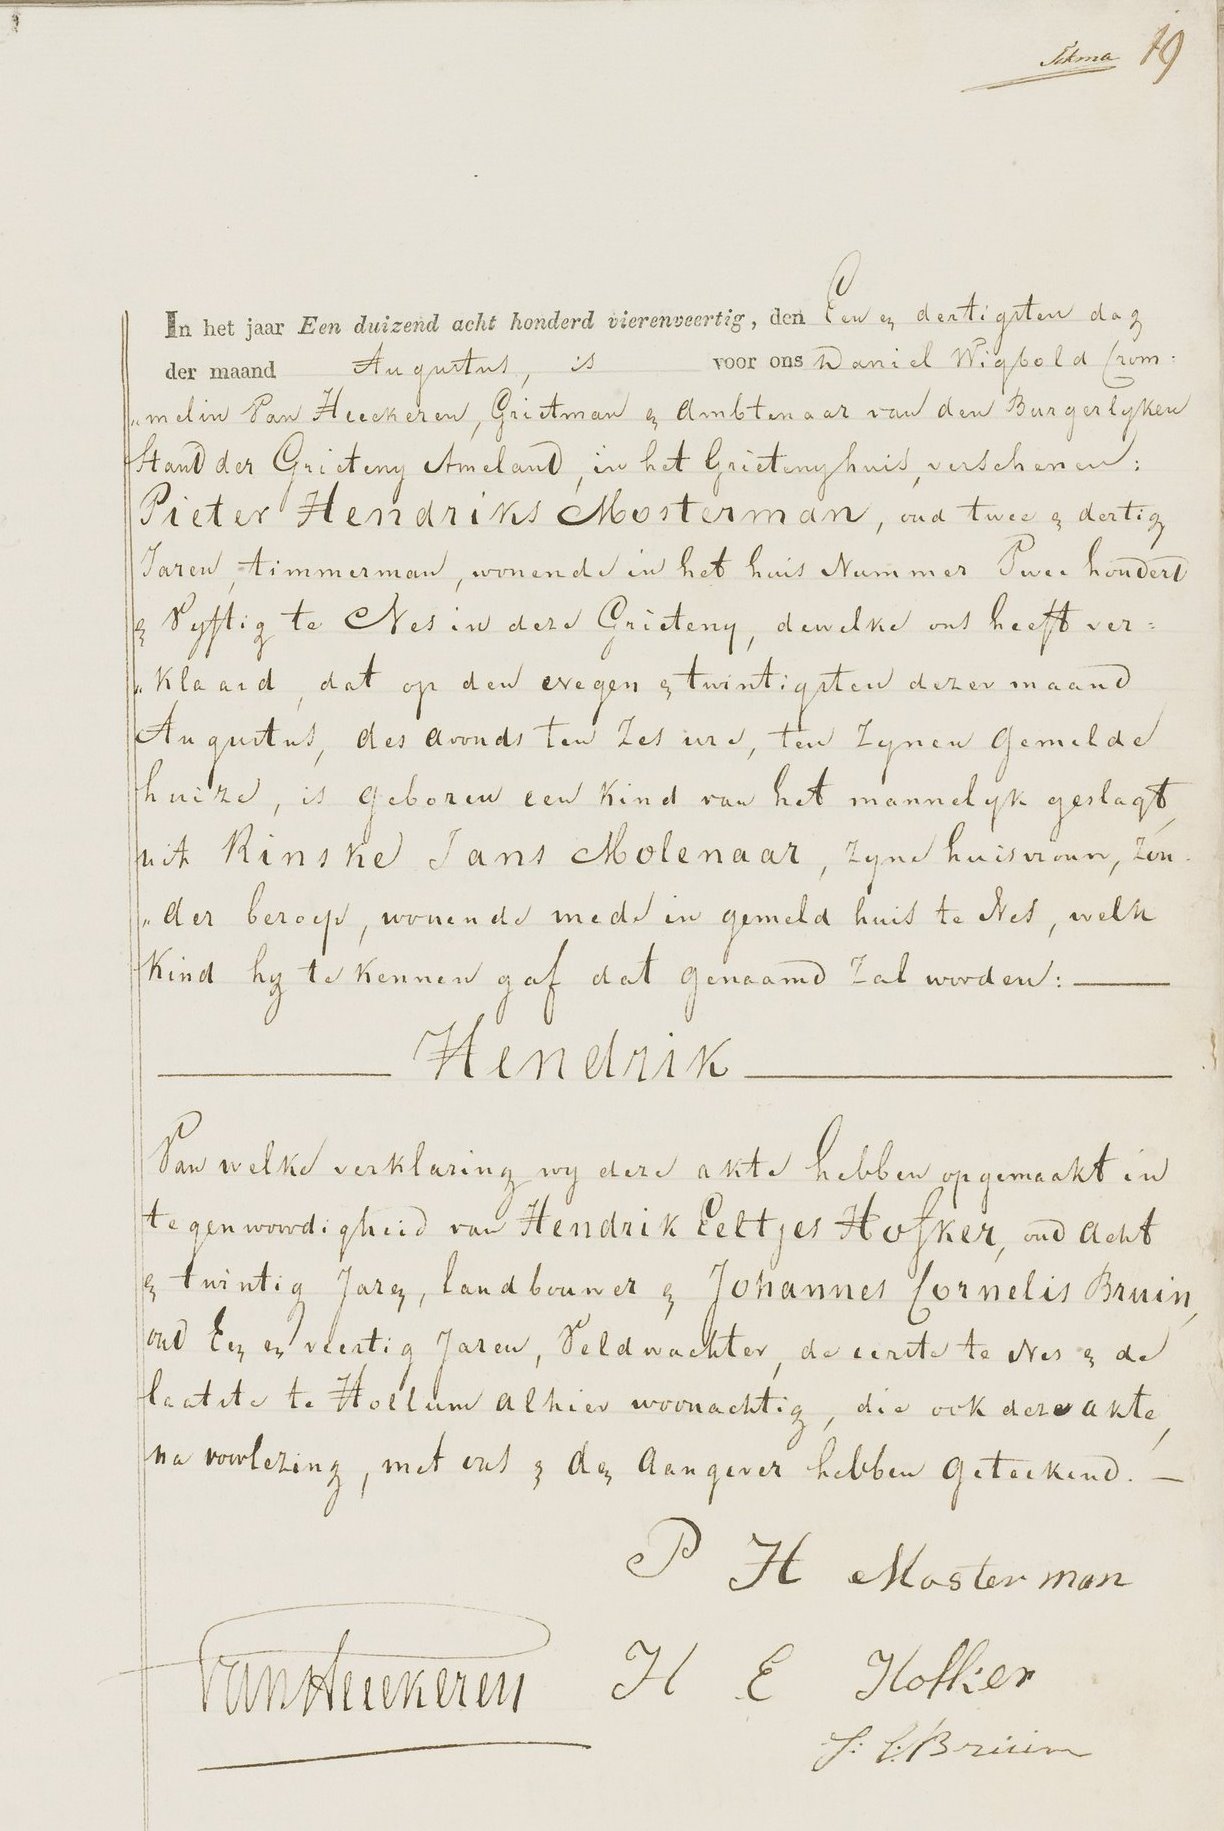 19
In het jaar Een duizend acht honderd vierenveertig, den Een en dertigsten dag
der maand Augustus, is voor ons Daniel Wigbold Crom=
„melin Van Heeckeren, Grietman en Ambtenaar van den Burgerlyken
Stand der Grieteny Ameland, in het Grietenyhuis, verschenen:
Pieter Hendriks Mosterman, oud twee en dertig
Jaren, timmerman, wonende in het huis Nummer Twee honderd
en Vyftig te Nes in deze Grieteny, dewelke ons heeft ver=
„klaard, dat op den negen en twintigsten dezer maand
Augustus, des avonds ten zes ure, ten zynen gemelde
huize, is geboren een kind van het mannelyk geslagt,
uit Rinske Jans Molenaar, zyne huisvrouw, zon=
„der beroep, wonende mede in gemeld huis te Nes, welk
kind hy te kennen gaf dat genaamd zal worden:
Hendrik
Van welke verklaring wy deze akte hebben opgemaakt in
tegenwoordigheid van Hendrik Eeltjes Hofker, oud acht
en twintig Jaren, landbouwer en Johannes Cornelis Bruin,
oud Een en veertig Jaren, Veldwachter, de eerste te Nes en de
laatste te Hollum alhier woonachtig, die ook deze akte,
na voorlezing, met ons en den Aangever hebben geteekend.
P H Mosterman
VanHeeckeren
H E Hofker
J: C: Bruin